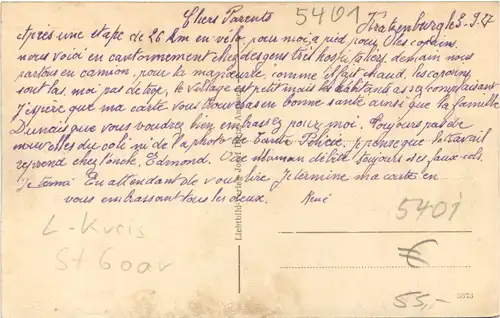 Chers Parents
5401
Kratzenburg le 3-9-27
Après une étape de 26 km en vélo pour moi, à pied, pour les copains,
nous voici en cantonnement chez des gens très hospitaliers, demain nous
partons en camion, pour la comme il fait chaud, les
sont las, moi pas de trop, le village est petit mais les habitants assez complaisants
J'espère que ma carte vous trouvera en bonne santé ainsi que la famille
Dumais que vous voudrez bien embrassez pour moi. Toujours pas de
nouvelles du coli ni de la photo de tante je pense que le travail
reprend chez l'oncle Edmond. Maman débite toujours des faux-cols.
En attendant de vous lire, Je termine ma carte en
vous embrassant tous les deux. René
Lichtbild-Verlag
L-Kreis
St Goar
5401
€
55,-
5873